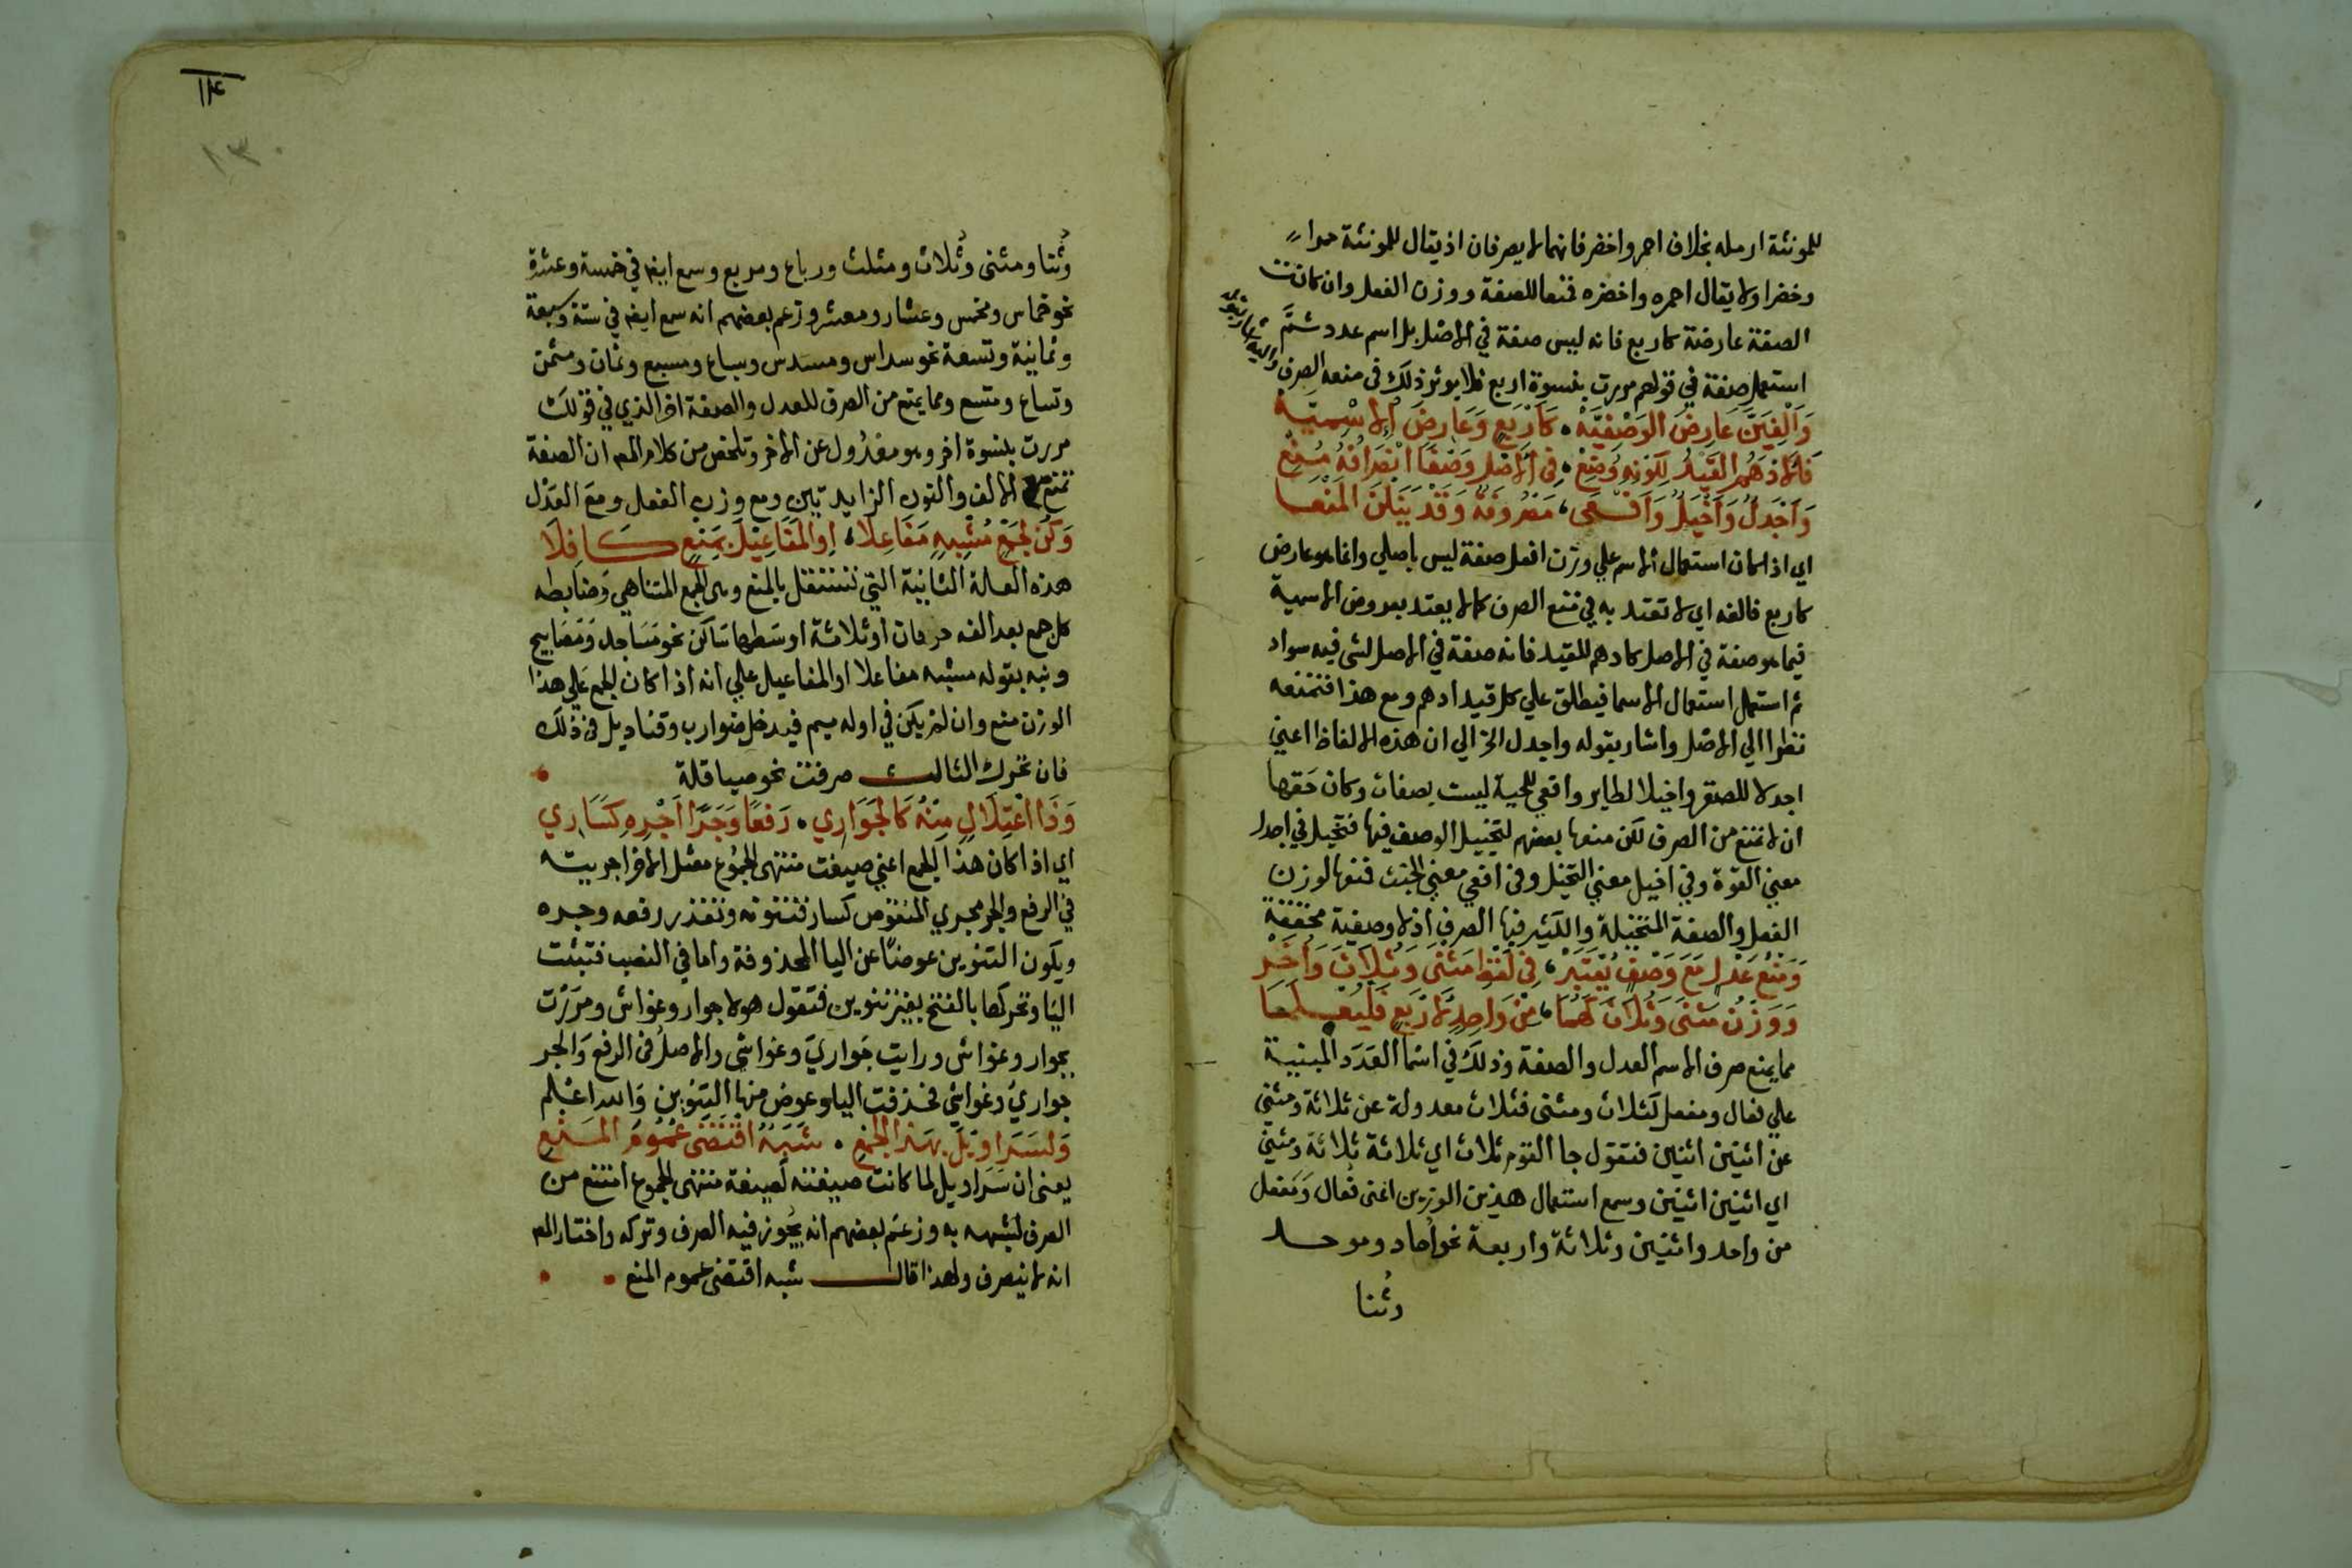 للمونثة ارمله بخلاف احمر واخضر فانهما لا يصرفان اذ يقال للمونثة حمراء
وخضرا ولا يقال احمره واخضره فمنعا للصفة ووزن الفعل وان كانت
الصفة عارضة كاربع فانه ليس صفة في الاصل بل اسم عدد ثم
استعمل صفة في قولهم مررت بنسوة اربع فلا يوثر ذلك في منعه الصرف
واليه اشار بقوله
وَأَلْغِيَنَّ عَارِضَ الوَصْفِيَّهْ، كَأَرْبَعٍ وَعَارِضَ الإسْمِيَّه
فَالأَدْهَمُ القَيْدُ لِكَوْنِهِ وُضِعْ، فِي الأَصْلِ وَصْفًا انْصِرَافُهُ مُنِعْ
وَأَجْدَلٌ وَأَخْيَلٌ وَأَفْعَى، مَصْرُوفَةٌ وَقَدْ يَنَلْنَ المَنْعَا
اي اذا كان استعمال الاسم علي وزن افعل صفة ليس باصلي وانما هو عارض
كاربع فالغه اي لا تعتد به في منع الصرف كما لا يعتد بعروض الاسمية
فيما هو صفة في الاصل كادهم للقيد فانه صفة في الاصل لشى فيه سواد
ثم استعمل استعمال الاسما فيطلق علي كل قيد ادهم ومع هذا فتمنعه
نظرا الي الاصل واشار بقوله واجدل الخ الي ان هذه الالفاظ اعني
اجدلا للصقر واخيلا لطاير وافعي للحية ليست بصفات وكان حقها
ان لا تمنع من الصرف لكن منعها بعضهم لتخييل الوصف فيها فتخيل في اجدل
معني القوة وفي اخيل معني التخيل وفي افعي معني الخبث فمنعها لوزن
الفعل والصفة المتخيلة والكثير فيها الصرف اذ لا وصفية محققة
وَمَنْعُ عَدْلٍ مَعَ وَصْفٍ مُعْتَبَرْ، فِي لَفْظِ مَثْنَى وَثُلَاثَ وَأُخَرْ
وَوَزْنُ مَثْنَى وَثُلَاثَ كَهُمَا، مِنْ وَاحِدٍ لِأَرْبَعٍ فَلْيُعْلَمَا
مما يمنع صرف الاسم العدل والصفة وذلك في اسما العدد المبنية
علي فعال ومفعل كثلاث ومثنى فثلاث معدولة عن ثلاثة ومثنى
عن اثنين اثنين فتقول جا القوم ثلاث اي ثلاثة ثلاثة ومثنى
اي اثنين اثنين وسمع استعمال هذين الوزنين اعنى فُعال ومَفعل
من واحد واثنين وثلاثة واربعة نحو أحاد وموحد
وثُنا
١١٤
١٣٠
وثُنا ومثنى وثُلاث ومثلث ورباع ومربع وسمع ايضا في خمسة وعشرة
نحو خماس ومخمس وعشار ومعشر وزعم بعضهم انه سمع ايضا في ستة وسبعة
وثمانية وتسعة نحو سداس ومسدس وسباع ومسبع وثمان ومثمن
وتساع ومتسع ومما يمنع من الصرف للعدل والصفة اخر الذي في قولك
مررت بنسوة اخر وهو معدول عن الاخر وتلخص من كلام المص ان الصفة
تمنع مع الالف والنون الزايدتين ومع وزن الفعل ومع العدل
وَكُنْ لِجَمْعٍ مُشْبِهٍ مَفَاعِلَا، اوِ المَفَاعِيلَ بِمَنْعٍ كَافِلَا
هذه العلة الثانية التي تستقل بالمنع وهى الجمع المتناهي وضابطه
كل جمع بعد الفه حرفان او ثلاثة اوسطها ساكن نحو مساجد ومصابيح
ونبه بقوله مشبه مفاعلا او المفاعيل علي انه اذا كان الجمع علي هذا
الوزن منع وان لم يكن في اوله ميم فيدخل ضوارب وقناديل في ذلك
فان تحرك الثالث صرفت نحو صياقلة
وَذَا اعْتِلَالٍ مِنْهُ كَالجَوَارِي، رَفْعًا وَجَرًّا أَجْرِهِ كَسَارِي
اي اذا كان هذا الجمع اعني صيغت منتهى الجموع معتل الاخر اجريته
في الرفع والجر مجري المنقوص كسار فتنونه وتقدر رفعه وجره
ويكون التنوين عوضًا عن اليا المحذوفة واما في النصب فتثبت
اليا وتحركها بالفتح بغير تنوين فتقول هولا جوار وغواش ومررت
بجوار وغواش ورايت جواريَ وغواشي والاصل في الرفع والجر
جواريُ وغواشي فحذفت اليا وعوض منها التنوين والله اعلم
وَلِسَرَاوِيلَ بِهَذَا الجَمْعِ، شَبَهٌ اقْتَضَى عُمُومَ المَنْعِ
يعنى ان سراويل لما كانت صيغته لصيغة منتهى الجموع امتنع من
الصرف لشبهه به وزعم بعضهم انه يجوز فيه الصرف وتركه واختار المص
انه لا ينصرف ولهذا قال شبه اقتضى عموم المنع